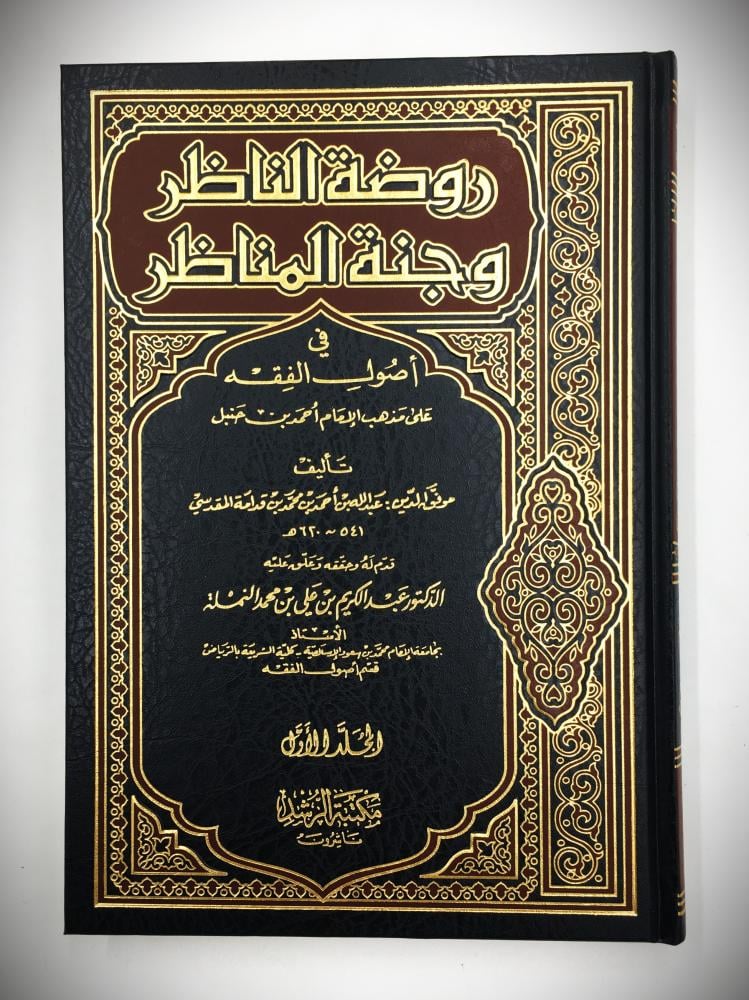 روضة الناظر
وجنة المناظر
في
أصول الفقه
على مذهب الإمام أحمد بن حنبل
تأليف
موفق الدين: عبدالله بن أحمد بن محمد بن قدامة المقدسي
٥٤١ ~ ٦٢٠هـ
قدم له وحققه وعلق عليه
الدكتور عبد الكريم بن علي بن محمد النملة
الأستاذ
بجامعة الإمام محمد بن سعود الإسلامية - كلية الشريعة بالرياض
قسم أصول الفقه
المجلد الأول
مكتبة الرشد
ناشرون